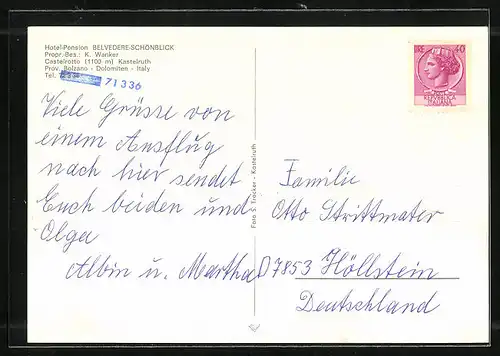 Hotel-Pension BELVEDERE-SCHÖNBLICK
Propr.-Bes.: K. Wanker
Castelrotto (1100 m) Kastelruth
Prov. Bolzano - Dolomiten - Italy
Tel.
71336
Viele Grüsse von
einem Ausflug
nach hier sendet
Euch beiden und
Olga
Albin u. Martha
Foto S. Trocker - Kastelruth
40
Familie
Otto Strittmater
D 7853 Höllstein
Deutschland